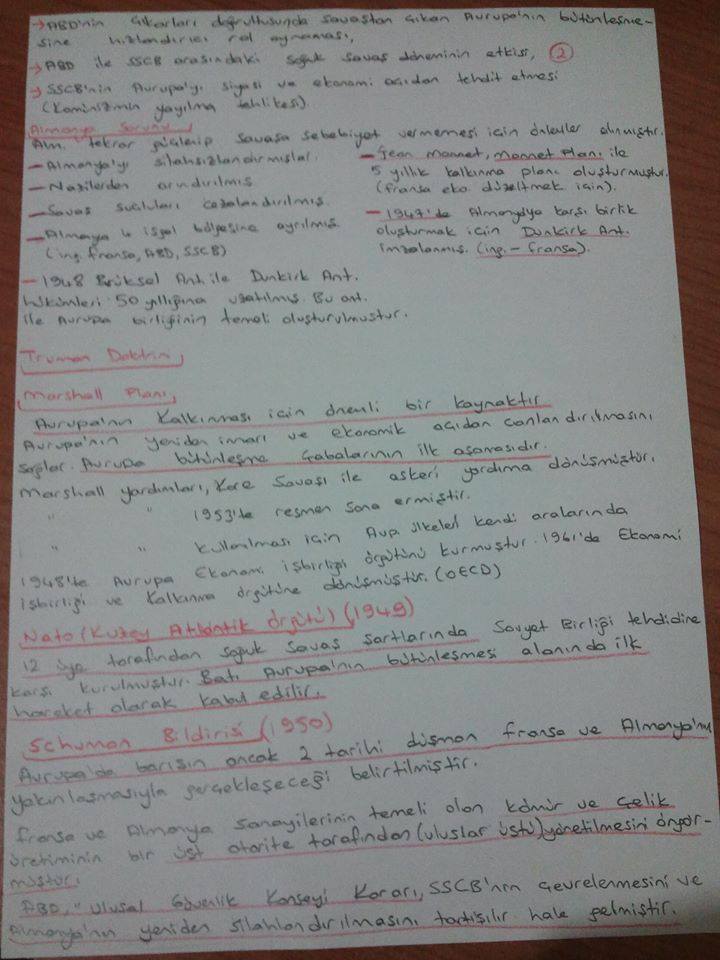 → ABD'nin çıkarları doğrultusunda savaştan çıkan Avrupa'nın bütünleşme-
sine hızlandırıcı rol oynaması,
→ ABD ile SSCB arasındaki soğuk savaş döneminin etkisi, 2
→ SSCB'nin Avrupa'yı siyasi ve ekonomi açıdan tehdit etmesi
(Kominizmin yayılma tehlikesi).
Almanya Sorunu
Alm. tekrar güçlenip savaşa sebebiyet vermemesi için önlemler alınmıştır.
- Almanya'yı silahsızlandırmışlar.
- Nazilerden arındırılmış
- Savaş suçluları cezalandırılmış.
- Almanya 4 işgal bölgesine ayrılmış
(ing. fransa, ABD, SSCB)
- Jean Monnet, Monnet Planı ile
5 yıllık kalkınma planı oluşturmuştur.
(fransa eko. düzeltmek için).
- 1947'de Almanya'ya karşı birlik
oluşturmak için Dunkirk Ant.
imzalanmış. (ing. - fransa).
- 1948 Brüksel Ant. ile Dunkirk Ant.
hükümleri 50 yıllığına uzatılmış. Bu ant.
ile Avrupa birliğinin temeli oluşturulmuştur.
Truman Doktrini
Marshall Planı
Avrupa'nın Kalkınması için önemli bir kaynaktır
Avrupa'nın yeniden imarı ve ekonomik açıdan canlandırılmasını
sağlar. Avrupa bütünleşme çabalarının ilk aşamasıdır.
Marshall yardımları, Kore Savaşı ile askeri yardıma dönüşmüştür.
" " 1953'te resmen sona ermiştir.
" " kullanılması için Avp. ülkeleri kendi aralarında
1948'te Avrupa Ekonomi işbirliği örgütünü kurmuştur. 1961'de Ekonomi
işbirliği ve Kalkınma örgütüne dönüşmüştür. (OECD)
Nato (Kuzey Atlantik Örgütü) (1949)
12 üye tarafından soğuk savaş şartlarında Sovyet Birliği tehdidine
karşı kurulmuştur. Batı Avrupa'nın bütünleşmesi alanında ilk
hareket olarak kabul edilir.
Schuman Bildirisi (1950)
Avrupa'da barışın ancak 2 tarihi düşman fransa ve Almanya'nın
yakınlaşmasıyla gerçekleşeceği belirtilmiştir.
fransa ve Almanya sanayilerinin temeli olan kömür ve çelik
üretiminin bir üst otorite tarafından (uluslar üstü) yönetilmesini öngör-
müştür.
ABD, "Ulusal Güvenlik Konseyi Kararı, SSCB'nin çevrelenmesini ve
Almanya'nın yeniden silahlandırılmasını tartışılır hale gelmiştir.